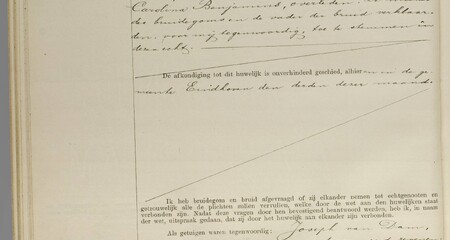 Carolina Benjamins, overleden. De moeder
des bruidegoms en de vader der bruid verklaar
den, voor mij tegenwoordig, toe te stemmen in
deze echt.
De afkondiging tot dit huwelijk is onverhinderd geschied, alhier en in de ge
meente Eindhoven den derden dezer maand.
Ik heb bruidegom en bruid afgevraagd of zij elkander nemen tot echtgenooten en
getrouwelijk alle de plichten zullen vervullen, welke door de wet aan den huwelijken staat
verbonden zijn. Nadat deze vragen door hen bevestigend beantwoord werden, heb ik, in naam
der wet, uitspraak gedaan, dat zij door het huwelijk aan elkander zijn verbonden.
Als getuigen waren tegenwoordig: Joseph van Dam,